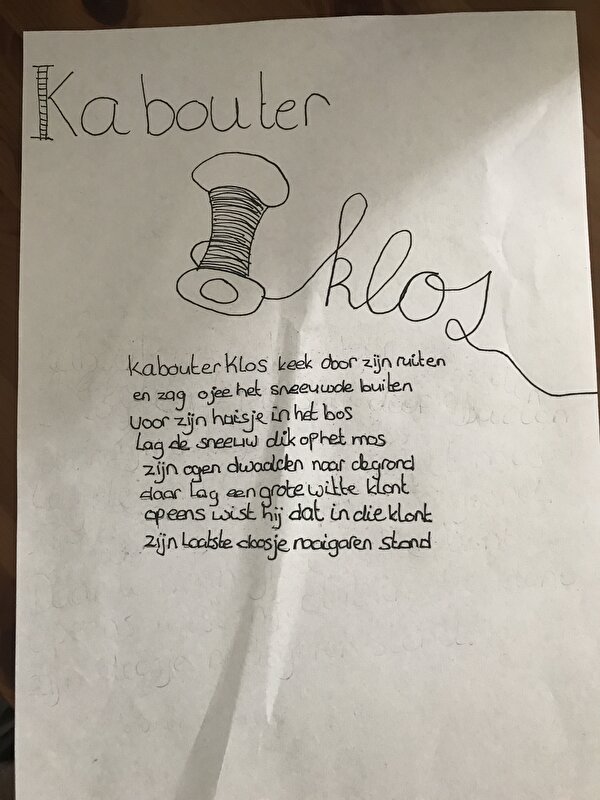 Kabouter
klos
kabouter Klos keek door zijn ruiten
en zag ojee het sneeuwde buiten
voor zijn huisje in het bos
Lag de sneeuw dik op het mos
zijn ogen dwaalden naar de grond
daar lag een grote witte klont
opeens wist hij dat in die klont
zijn laatste doosje naaigaren stond